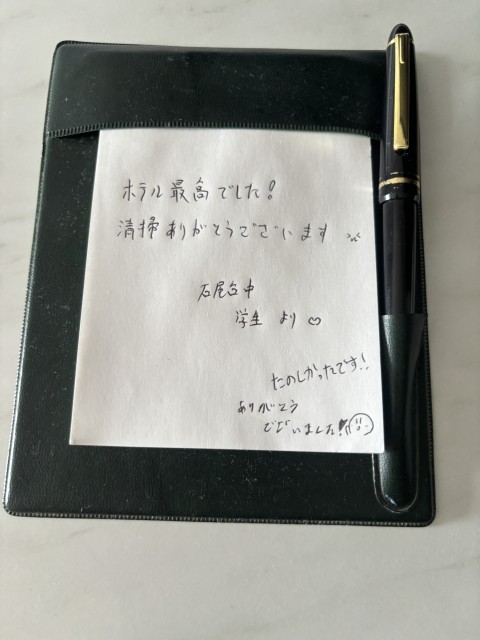 ホテル最高でした!
清掃ありがとうございます
石尾台中
学生 より♡
たのしかったです!!
ありがとう
ございました!